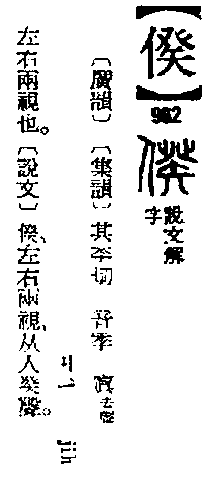 【傒】
962
說文解字
〔廣韻〕〔集韻〕其季切 音季 寘去聲
ㄐㄧˋ jih
左右兩視也。〔說文〕傒、左右兩視、从人癸聲。